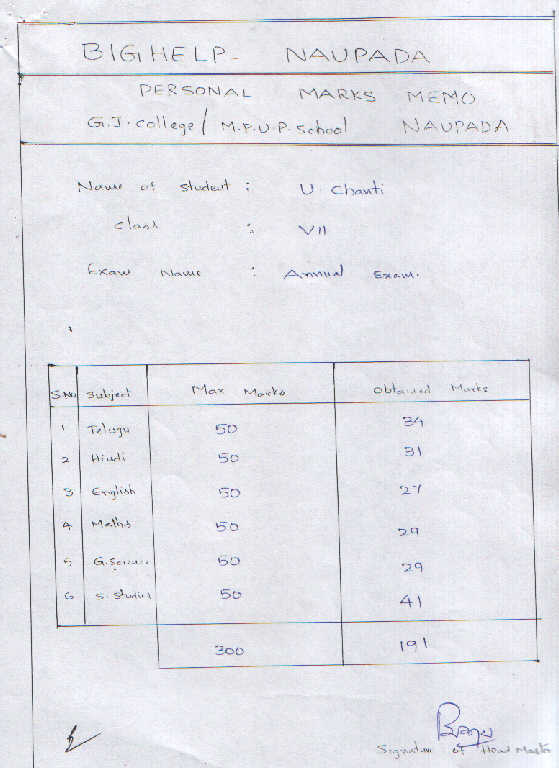 BIGHELP- NAUPADA
PERSONAL MARKS MEMO
G.J. College / M.P.U.P. School NAUPADA
Name of Student : U Chanti
Class : VII
Exam Name : Annual Exam.
S.No Subject Max Marks Obtained Marks
1 Telugu 50 34
2 Hindi 50 31
3 English 50 27
4 Maths 50 29
5 G. Science 50 29
6 S. Studies 50 41
300 191
Signature of Head Master